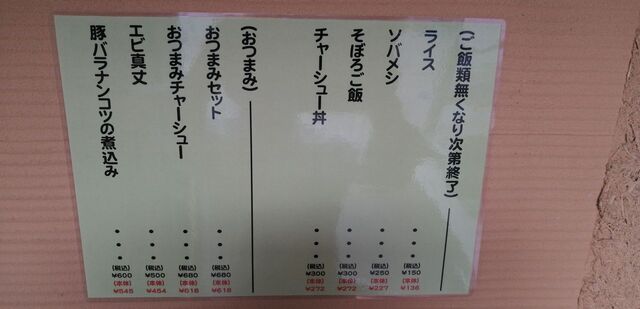 (ご飯類無くなり次第終了)
ライス・・・(税込)¥150(本体)¥136
ソバメシ・・・(税込)¥250(本体)¥227
そぼろご飯・・・(税込)¥300(本体)¥272
チャーシュー丼・・・(税込)¥300(本体)¥272
(おつまみ)
おつまみセット・・・(税込)¥680(本体)¥618
おつまみチャーシュー・・・(税込)¥680(本体)¥618
エビ真丈・・・(税込)¥500(本体)¥454
豚バラナンコツの煮込み・・・(税込)¥600(本体)¥545